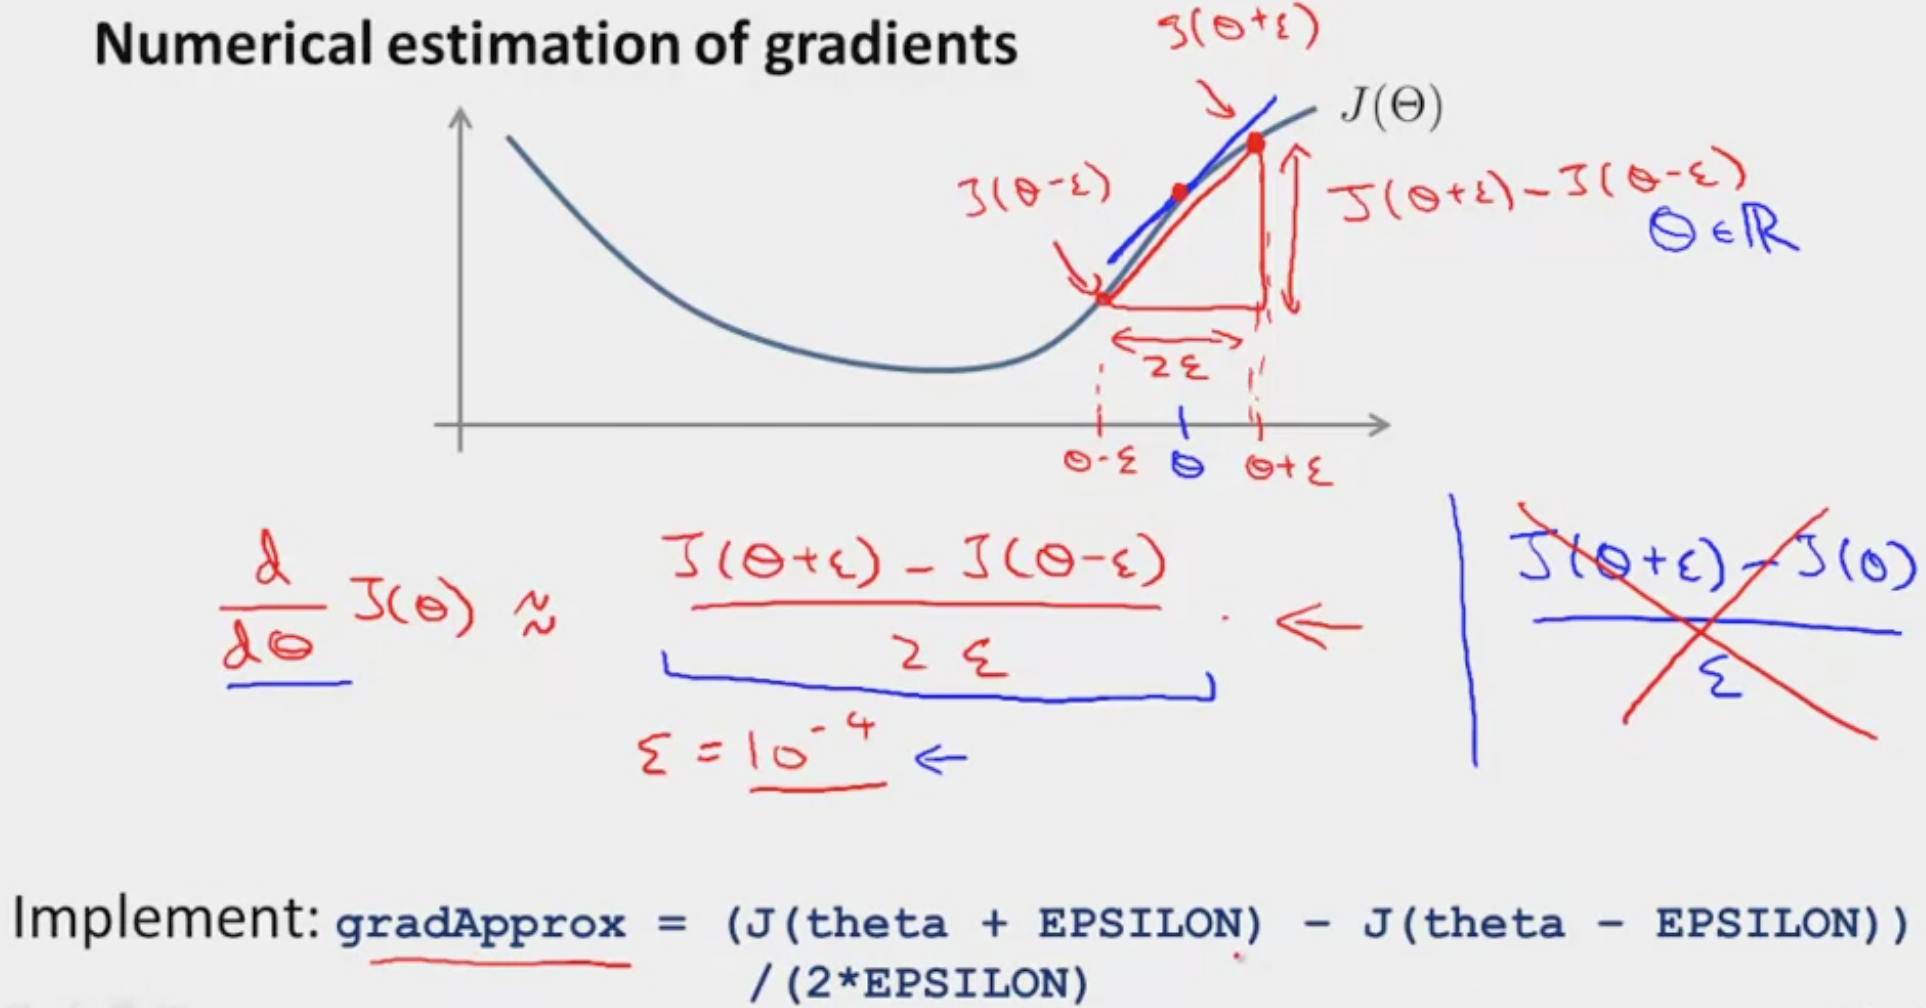 Numerical estimation of gradients
J(θ+ε)
J(Θ)
J(θ-ε)
J(θ+ε)-J(θ-ε)
θ ∈ ℝ
2ε
θ-ε θ θ+ε
d/dθ J(θ) ≈ J(θ+ε) - J(θ-ε) / 2ε
J(θ+ε)-J(θ) / ε
ε = 10^-4
Implement: gradApprox = (J(theta + EPSILON) - J(theta - EPSILON))
/(2*EPSILON)